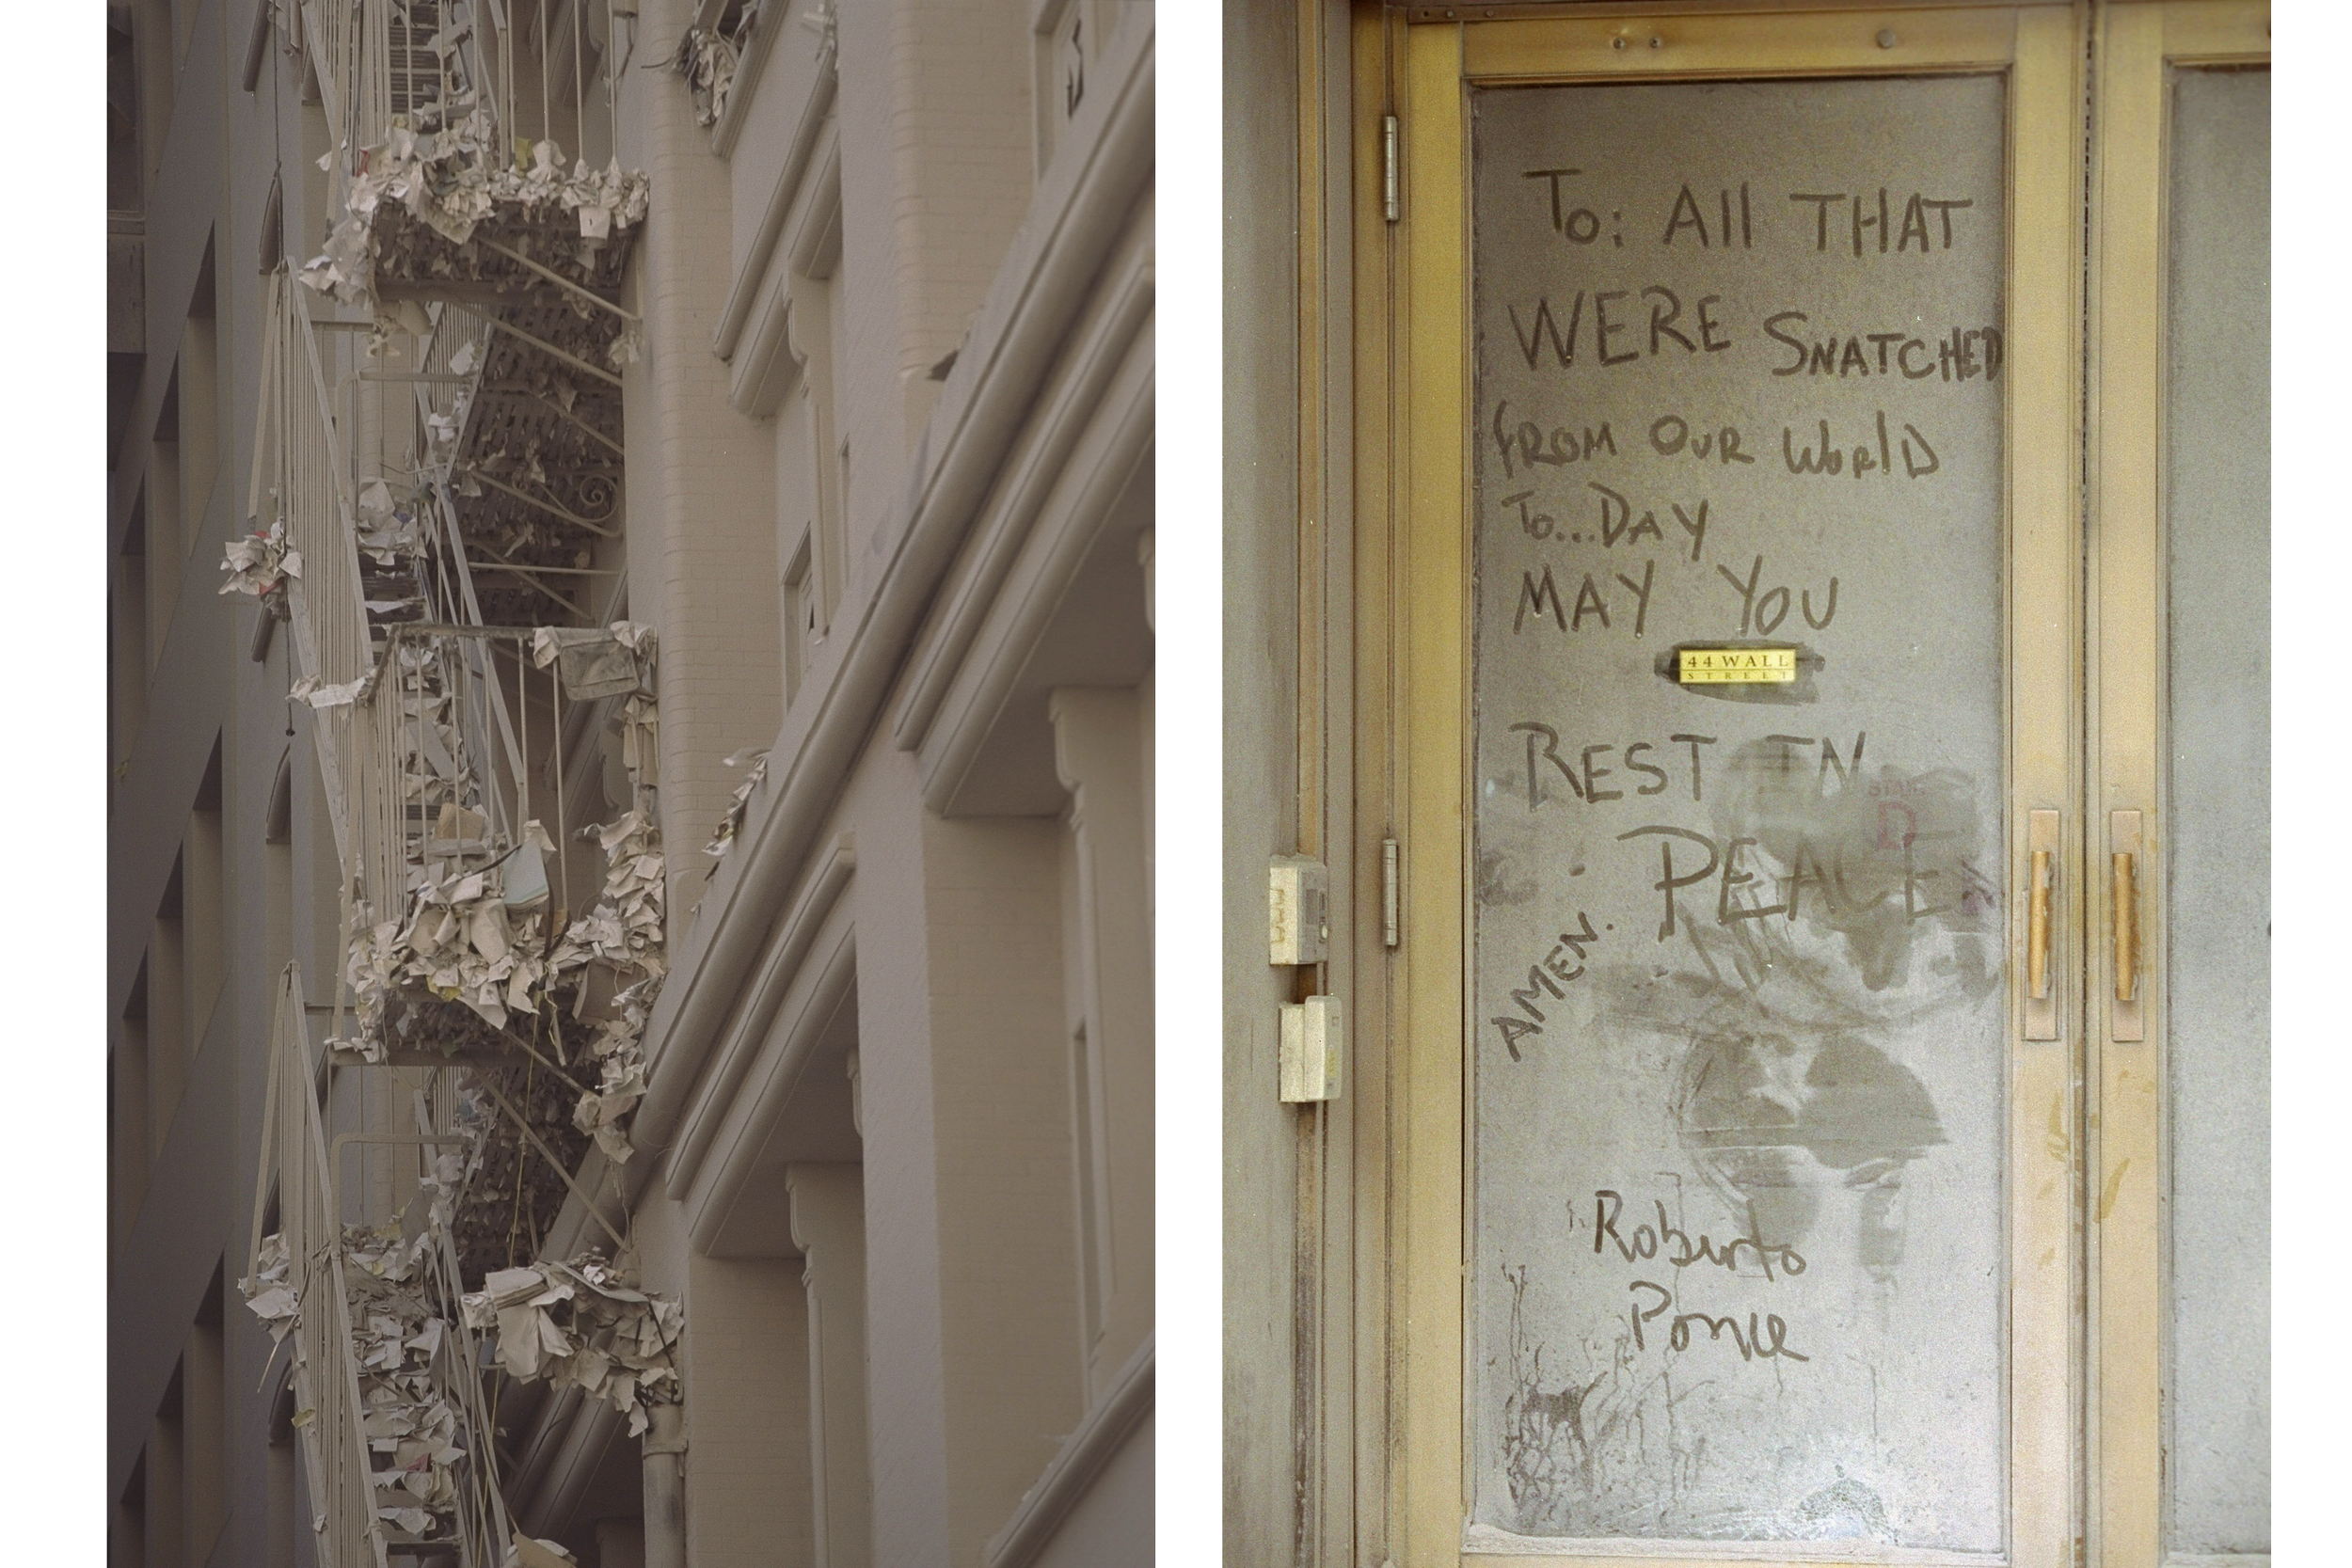 To: All THAT
WERE SNATCHED
FROM OUR WORLD
To...DAY
MAY YOU
44 WALL
STREET
REST IN
PEACE
AMEN.
Roberto
Ponce